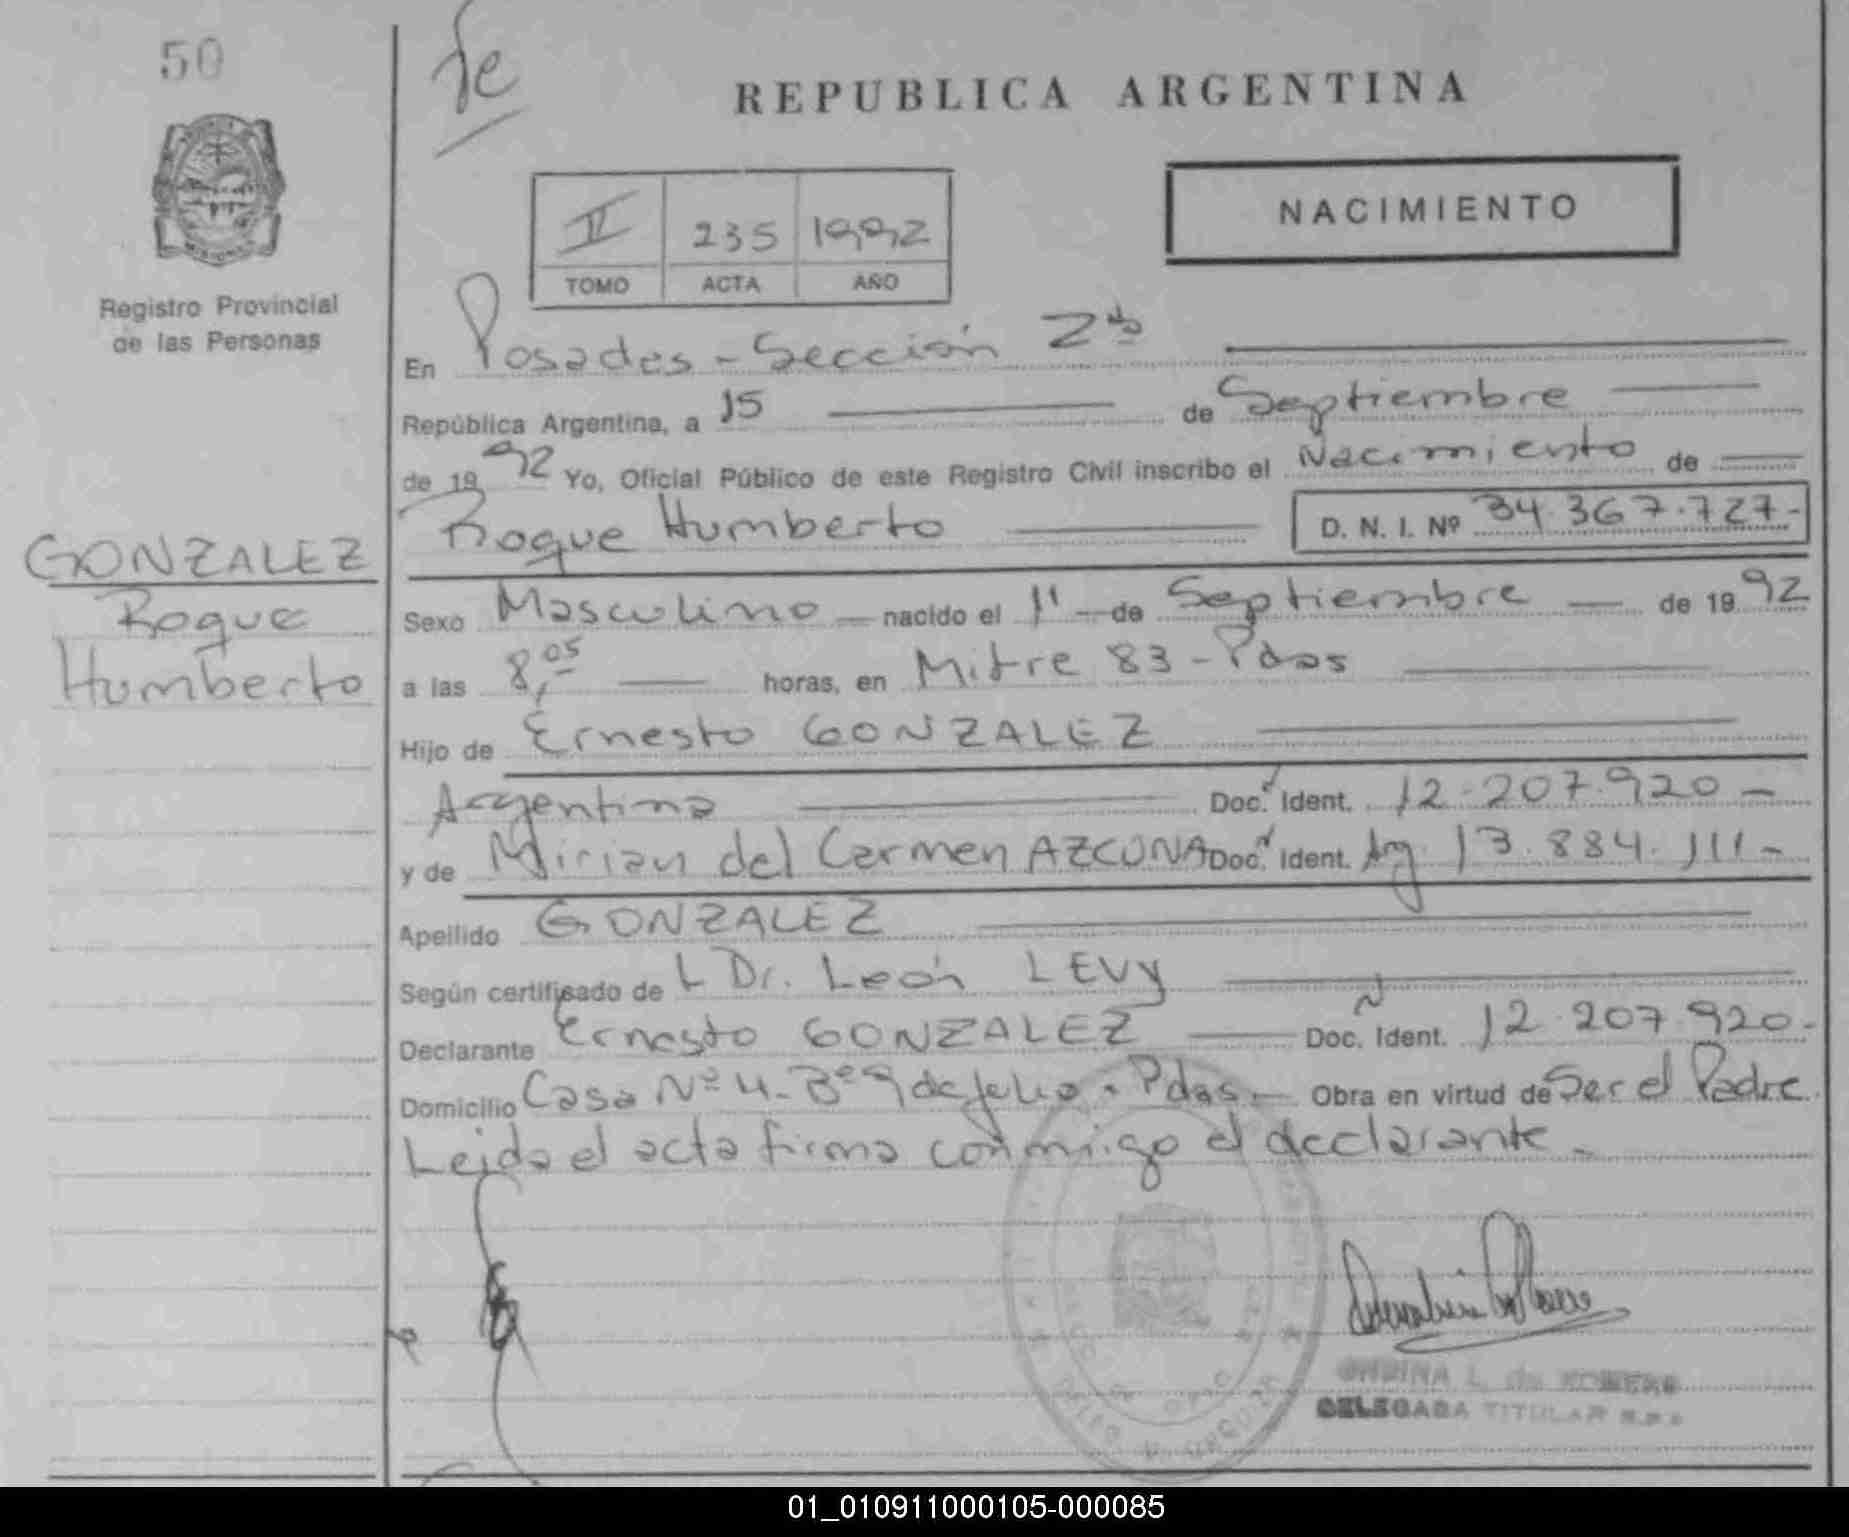 50
Registro Provincial
de las Personas
GONZALEZ
Roque
Humberto
REPUBLICA ARGENTINA
NACIMIENTO
II 235 1992
TOMO ACTA AÑO
En Posadas - Sección 2da
República Argentina, a 15 de Septiembre
de 1992 Yo, Oficial Público de este Registro Civil inscribo el Nacimiento de
Roque Humberto D. N. I. Nº 34.367.727-
Sexo Masculino nacido el 1º de Septiembre de 1992
a las 8,05 horas, en Mitre 83 - Pdas
Hijo de Ernesto GONZALEZ
Argentina Doc. Ident. 12.207.920-
y de Mirian del Carmen AZCONA Doc. Ident. Arg. 13.884.111-
Apellido GONZALEZ
Según certificado de L Dr. León LEVY
Declarante Ernesto GONZALEZ Doc. Ident. 12.207.920-
Domicilio Casa Nº 4 - Bº 9 de Julio - Pdas - Obra en virtud de Ser el Padre
Leida el acta firma conmigo el declarante -
L. de
DELEGADA TITULAR
01_010911000105-000085